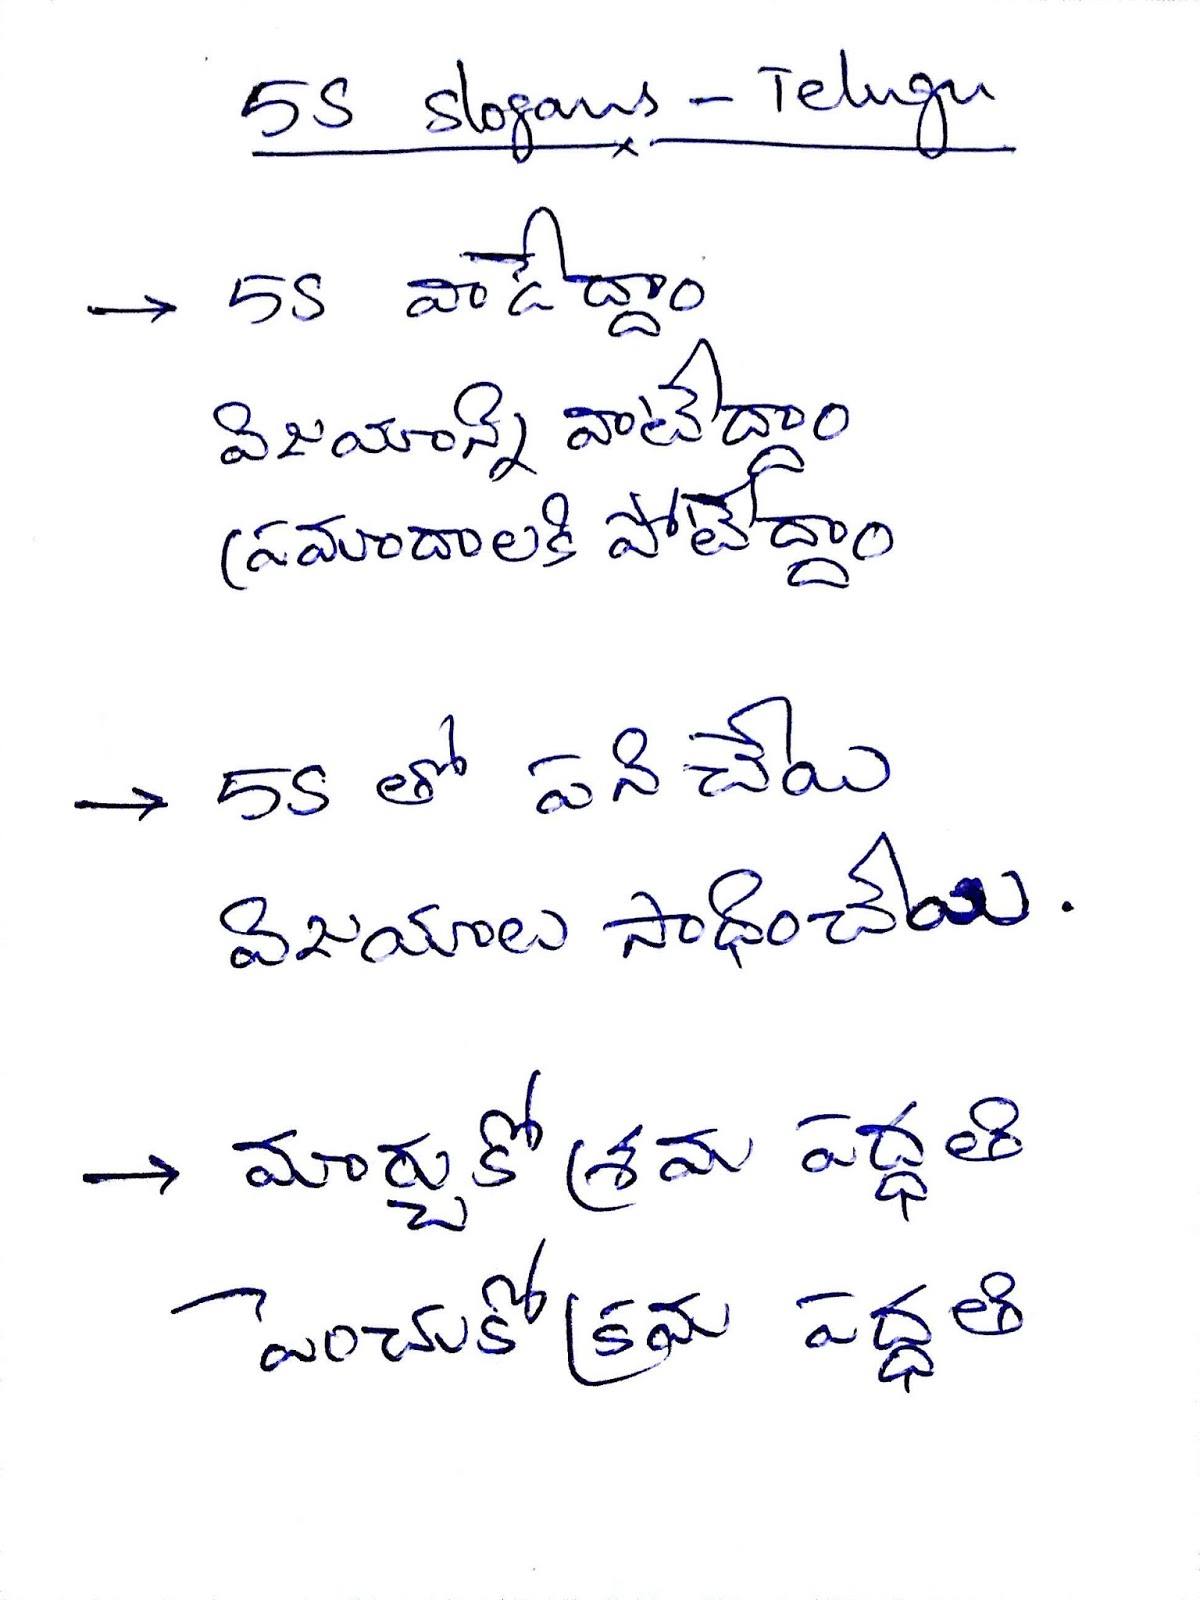 5S Slogans - Telugu
→ 5S వాడేద్దాం
విజయాన్ని వాటేద్దాం
ప్రమాదాలకి పోటేద్దాం
→ 5S తో పని చేయి
విజయాలు సాధించేయి.
→ మార్చుకో శ్రమ పద్ధతి
పెంచుకో క్రమ పద్ధతి